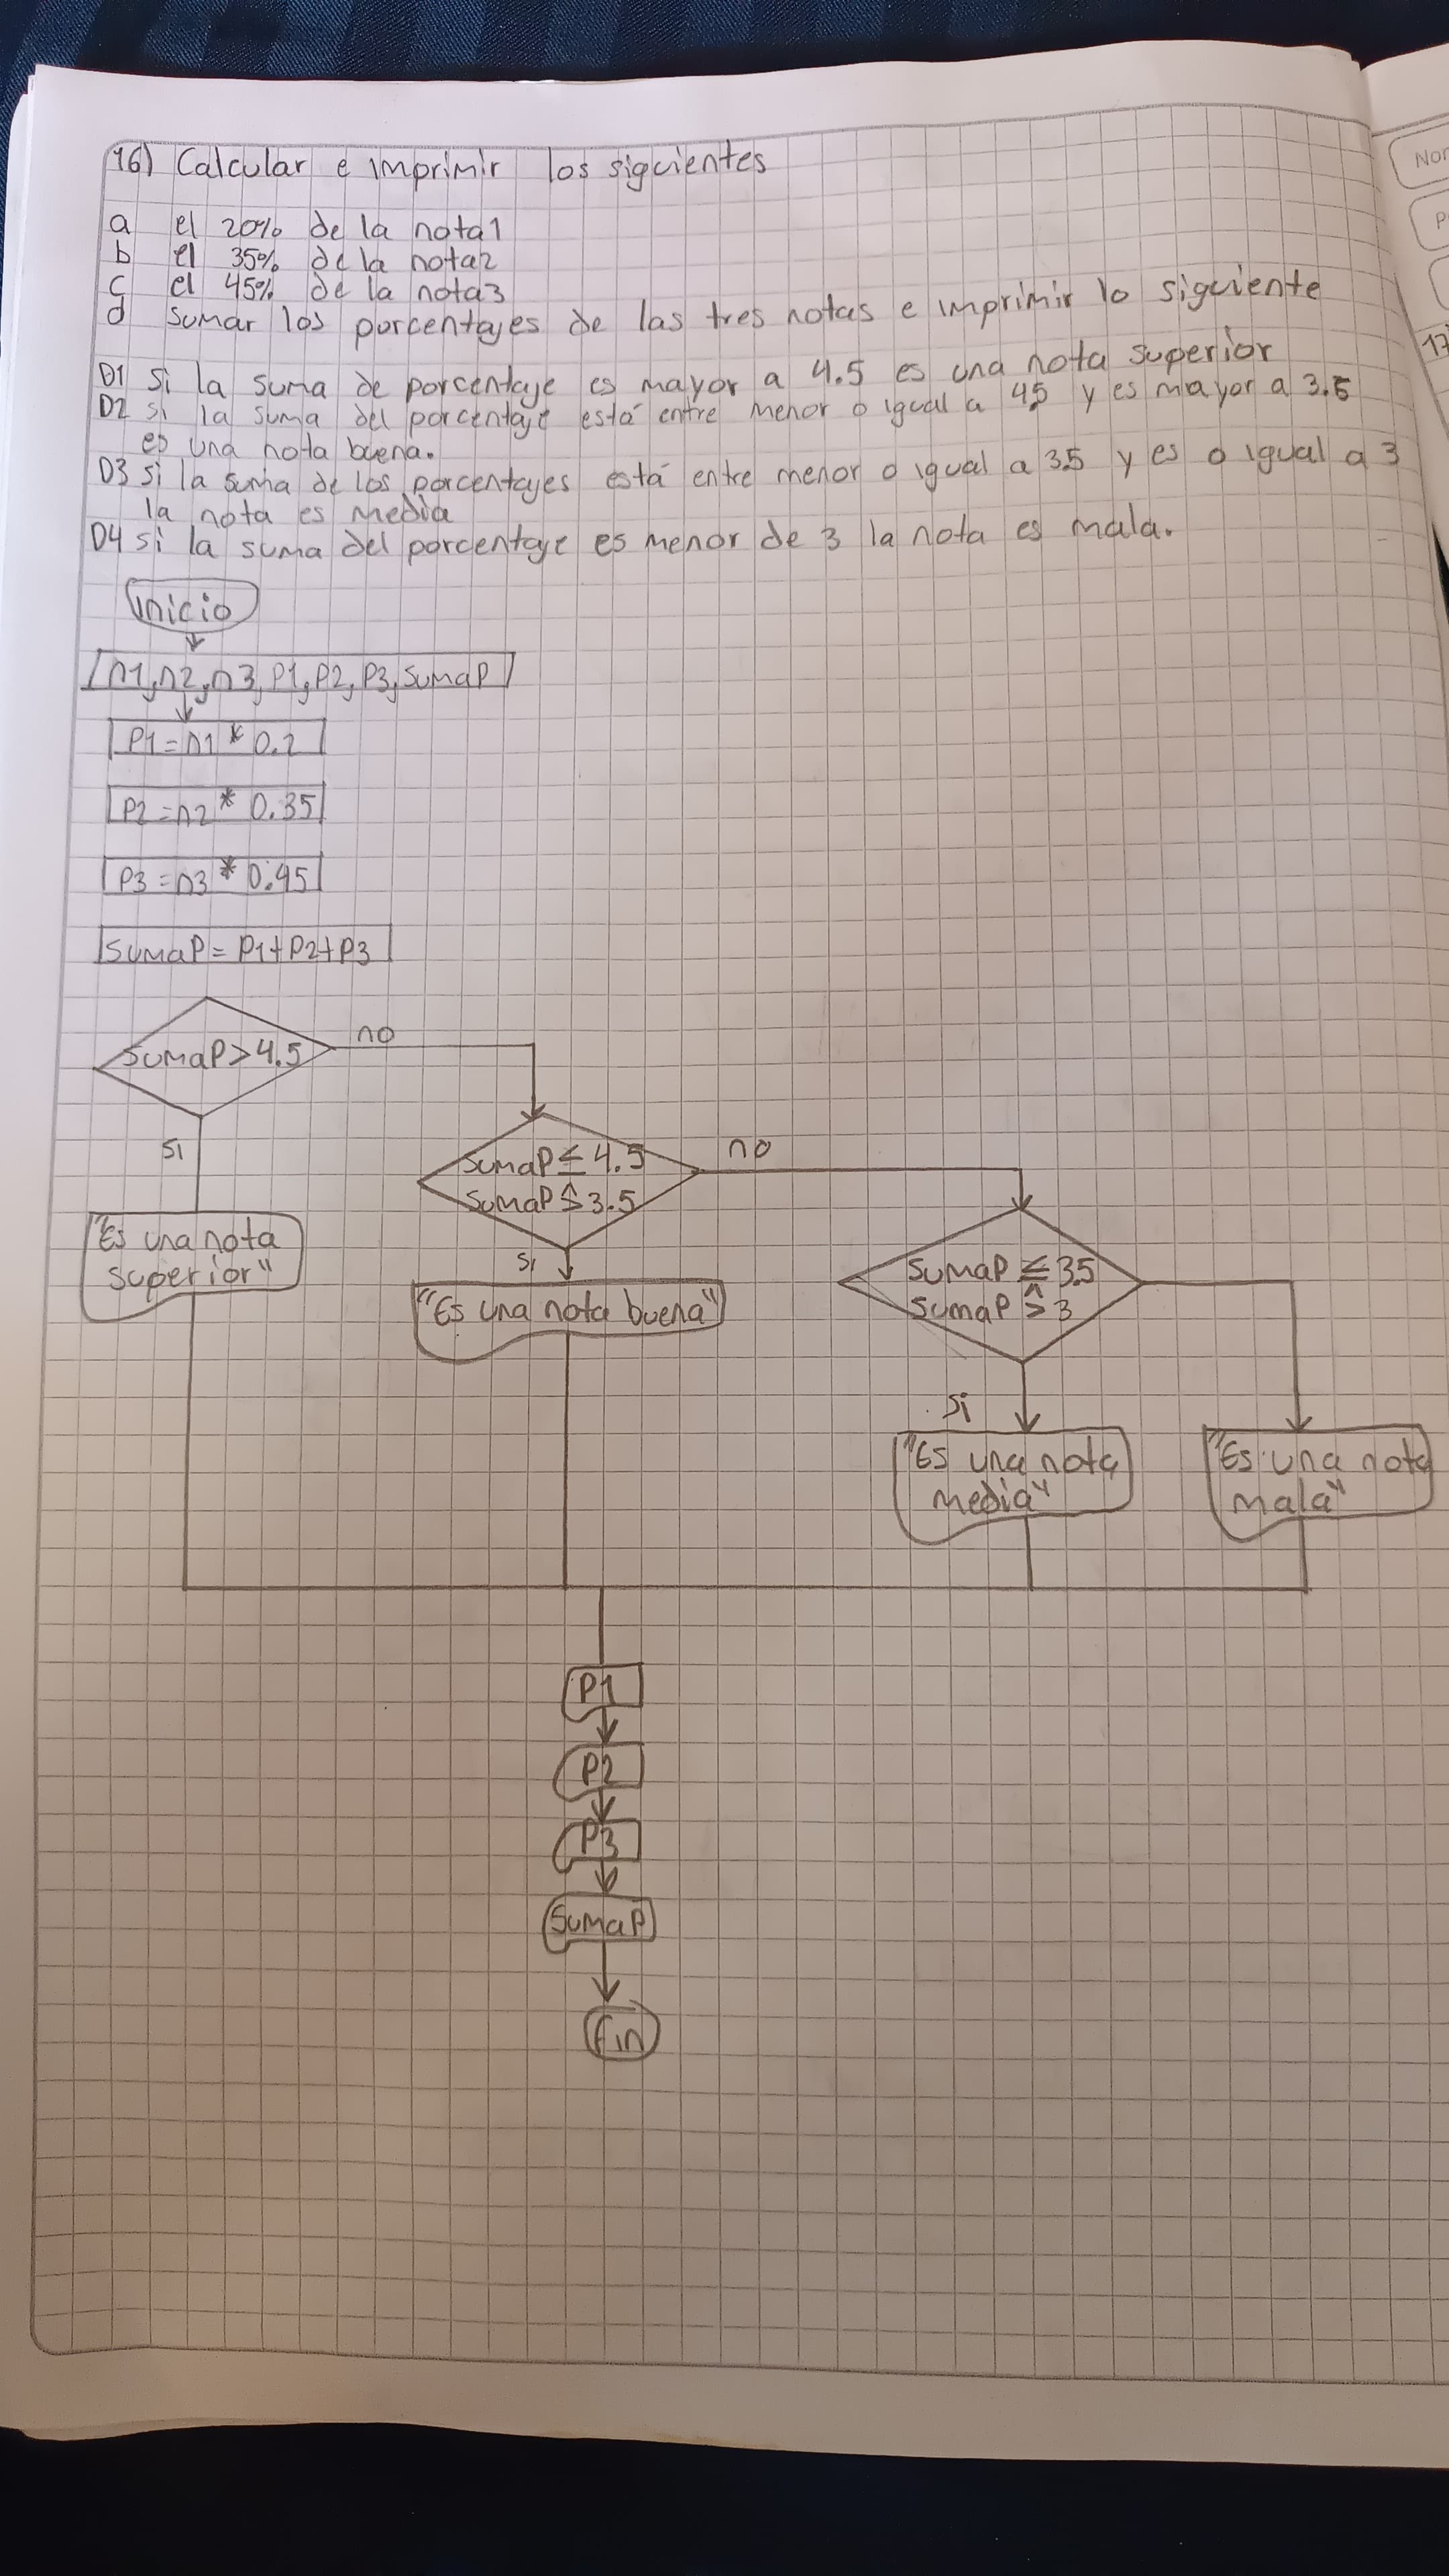 16) Calcular e imprimir los siguientes
a el 20% de la nota1
b el 35% de la nota2
c el 45% de la nota3
d sumar los porcentajes de las tres notas e imprimir lo siguiente
D1 si la suma de porcentaje es mayor a 4.5 es una nota superior
D2 si la suma del porcentaje está entre menor o igual a 4.5 y es mayor a 3.5
es una nota buena.
D3 si la suma de los porcentajes está entre menor o igual a 3.5 y es o igual a 3
la nota es media
D4 si la suma del porcentaje es menor de 3 la nota es mala.
inicio
n1, n2, n3, P1, P2, P3, SumaP
P1 = n1 * 0.2
P2 = n2 * 0.35
P3 = n3 * 0.45
SumaP = P1+P2+P3
SumaP > 4.5
no
si
SumaP ≤ 4.5
^
SumaP > 3.5
no
si
"Es una nota
superior"
"Es una nota buena"
SumaP ≤ 3.5
^
SumaP > 3
si
"Es una nota
media"
"Es una nota
mala"
P1
P2
P3
SumaP
Fin
Nor
P
17